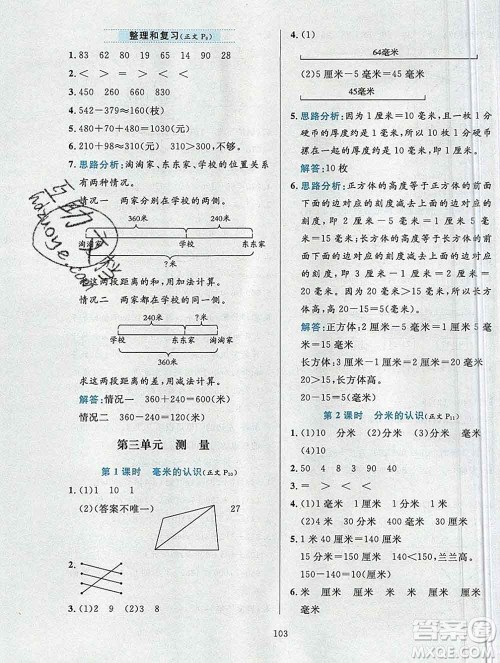 整理和复习(正文 P₉)
1. 83 62 80 14 90 28
2. ＜ ＞ ＜ ＝ ＞ ＞
3. 450 260 660 830
4. 542－379≈160(枝)
5. 480＋70＋480＝1030(元)
6. 210＋98≈310(元) 310＞300,不够。
7. 思路分析:淘淘家、东东家、学校的位置关系
有两种情况。
情况一 两家分别在学校的两侧。
360米 240米
淘淘家 学校 东东家
?米
求这两段距离的和,用加法计算。
情况二 两家都在学校的同一侧。
?米
学校 东东家 淘淘家
360米
求这两段距离的差,用减法计算。
解答:情况一 360＋240＝600(米)
情况二 360－240＝120(米)
第三单元 测 量
第1课时 毫米的认识(正文 P₁₀)
1. (1)1 10 1
2. (2)(答案不唯一) 27
3.
4. (1)
64毫米
(2)5厘米－5毫米＝45毫米
45毫米
5. 思路分析:因为1厘米＝10毫米,且一枚1分
硬币的厚度约是1毫米,所以10枚1分硬币
摞起来的厚度约是1厘米。
解答:10枚
6. 思路分析:正方体的高度等于正方体的前面
下面的边对应的刻度减去上面的边对应的
刻度,即20－5＝15(毫米);长方体的高度等
于长方体的前面下面的边对应的刻度减去上
面的边对应的刻度,即30－10＝20(毫米)。因
为20＞15,所以长方体高,高20－15＝5(毫
米)。
解答:正方体:2厘米－5毫米＝15毫米
长方体:3厘米－1厘米＝2厘米＝20毫米
20＞15,长方体高。
20－15＝5(毫米)
第2课时 分米的认识(正文 P₁₁)
1. (1)10 分米 10 分米
(2)10 10
2. (1)毫米 (2)分米 (3)米 (4)厘米
3. ＞ ＝ ＞ ＜ ＜ ＝
4. 4 40 30 400 90 4
5. 1米＝10分米
15分米＝150厘米 140＜150,兰兰高。
150－140＝10(厘米)
6. (1)毫米 厘米 厘米 厘米
(2)米 米 分米
103
MXQE.COM